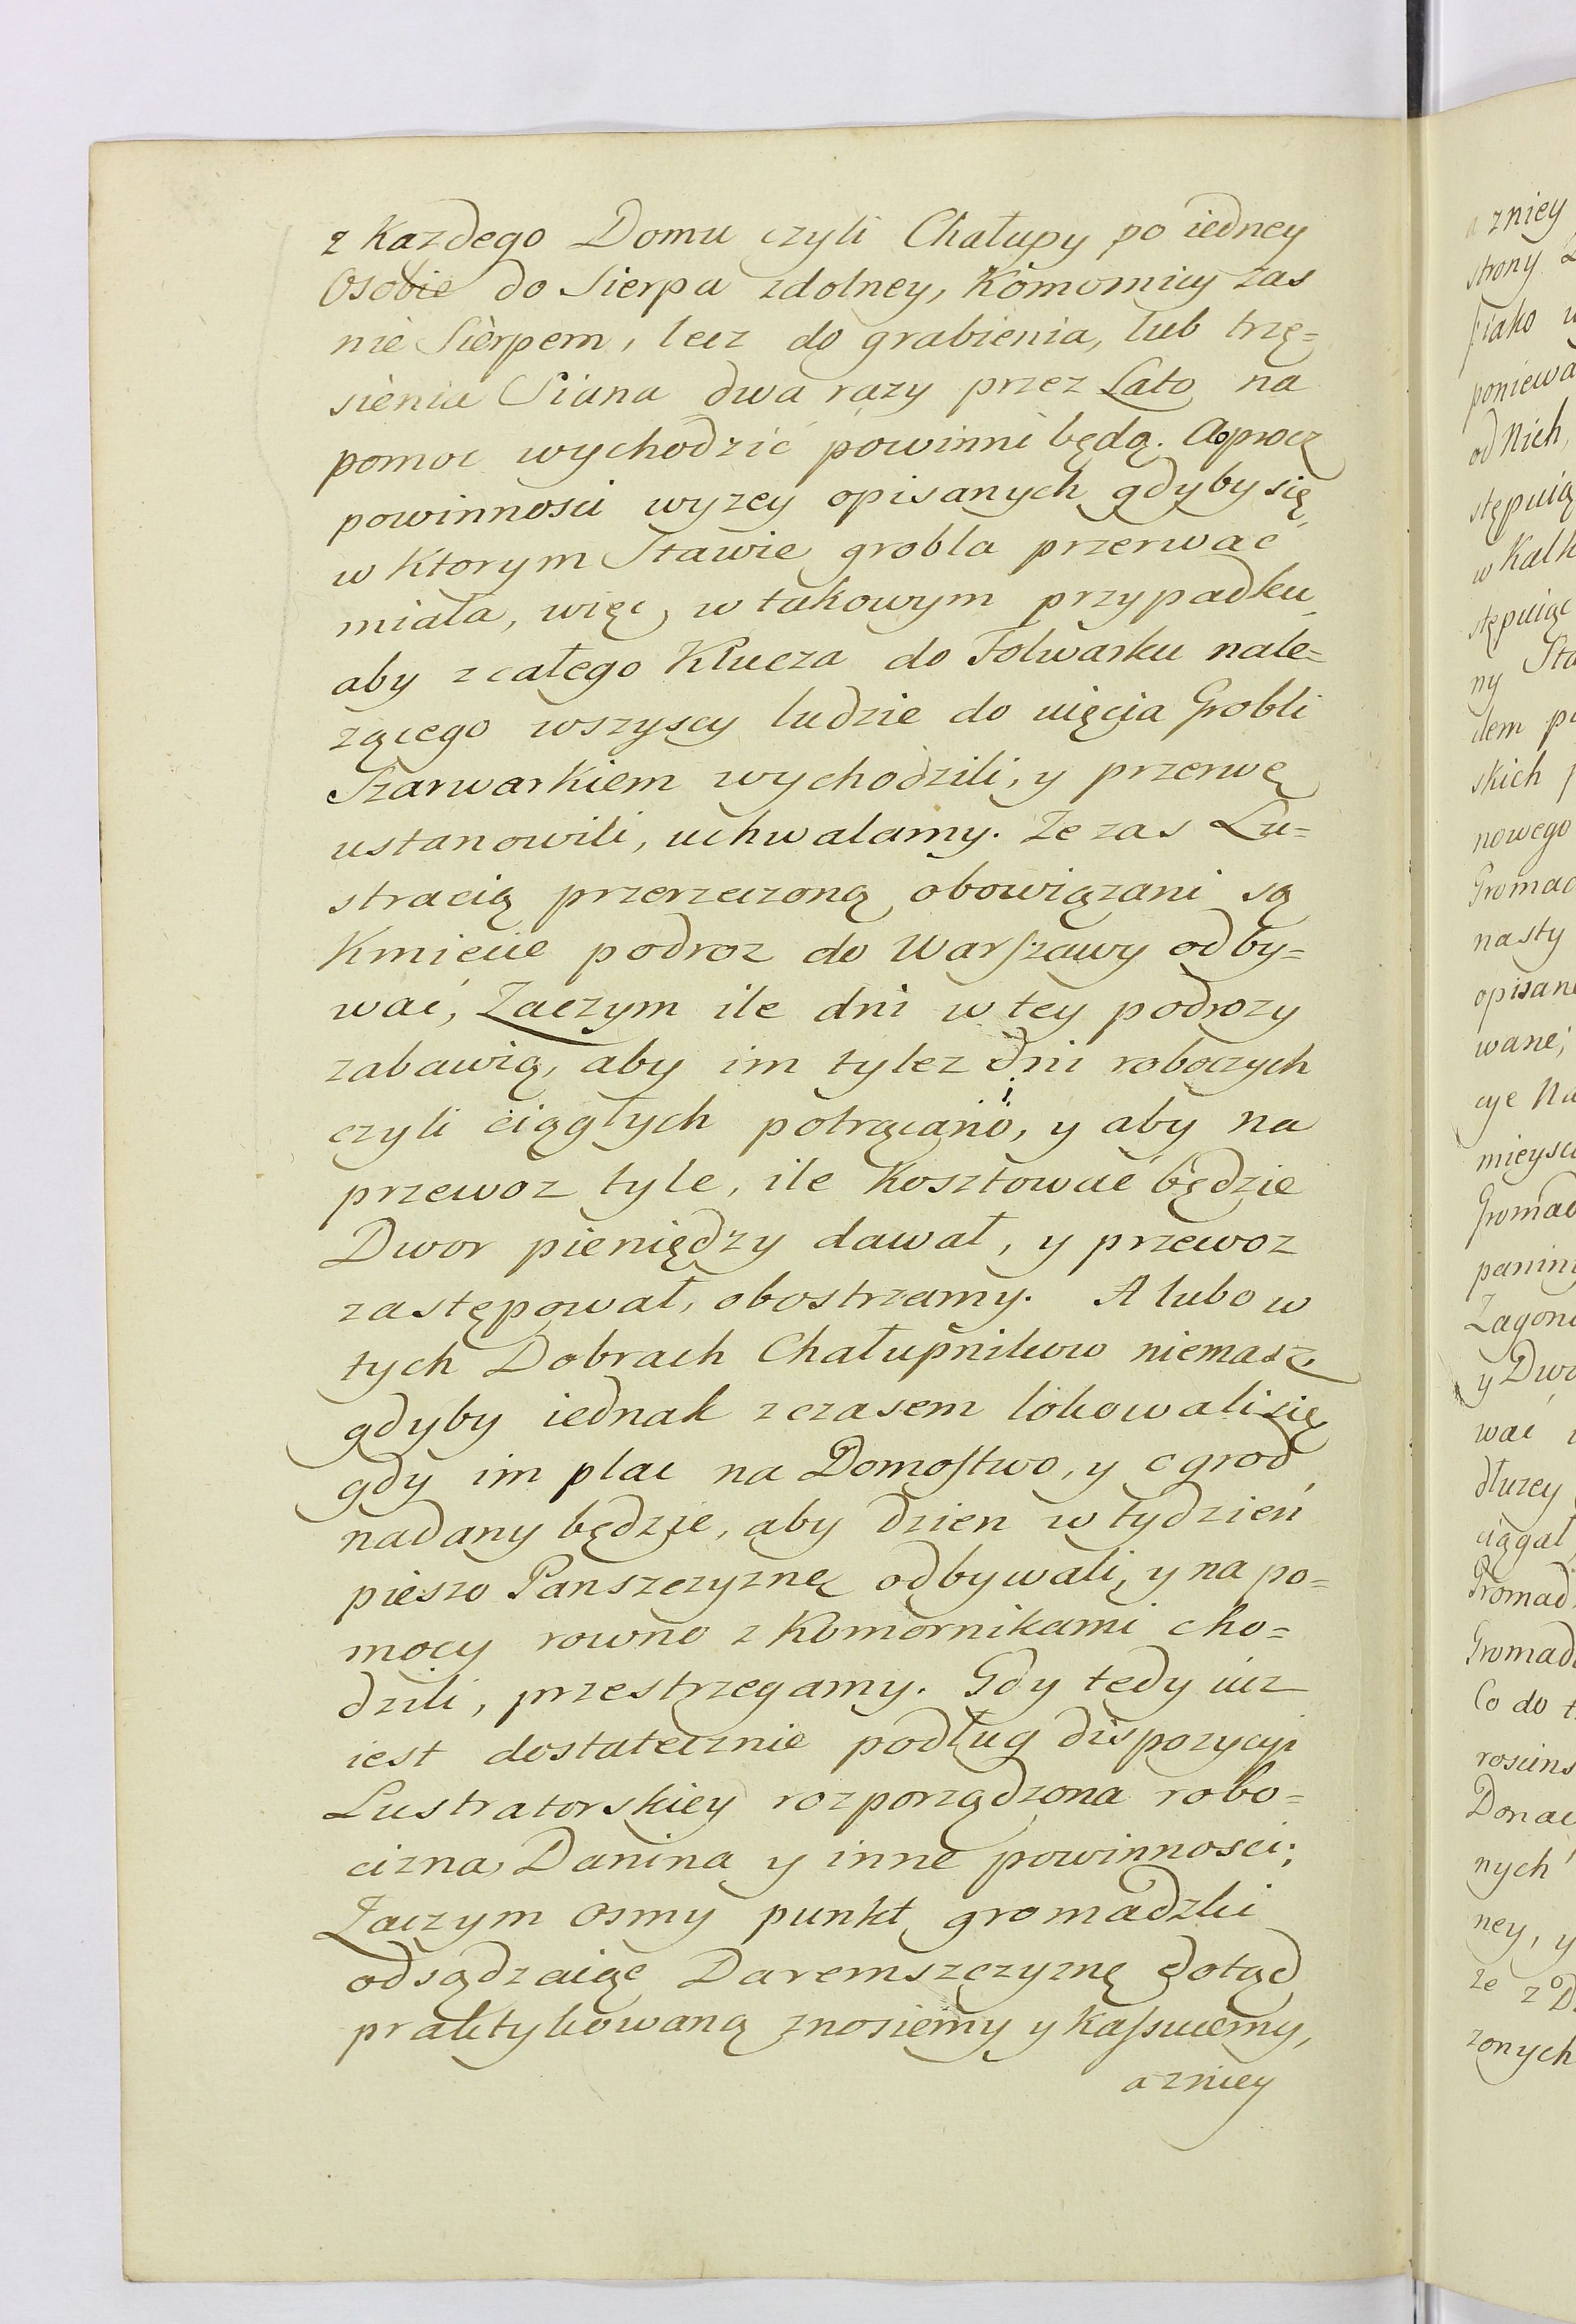 z Kazdego Domu czyli Chałupy po iedney
Osobie do Sierpa zdolney, Komornicy zas
nie Sierpem, lecz do grabienia, lub trzę=
sienia Siana dwa razy przez Lato na
pomoc wychodzić powinni będą. Aoprocz
powinnosci wyzey opisanych gdyby się
w Ktorym Stawie grobla przerwać
miała, więc w takowym przypadku
aby z całego Klucza do Folwarku nale=
zącego wszyscy ludzie do uięcia Grobli
Szarwarkiem wychodzili, y przerwę
ustanowili, uchwalamy. Ze zas Lu=
stracią przerzeczoną obowiązani są
Kmiecie podroz do Warszawy odby=
wać, Zaczym ile dni w tey podrozy
zabawią, aby im tylez dni roboczych
czyli ciągłych potrącano, y aby na
przewoz tyle, ile Kosztować będzie
Dwor pieniędzy dawał, y przewoz
zastępował, obostrzamy. A lubo w
tych Dobrach Chałupnikow niemasz
gdyby iednak z czasem lokowali się
gdy im plac na Domostwo, y ogrod
nadany będzie, aby dzien w tydzień
pieszo Panszczyznę odbywali, y na po=
mocy rowno z Komornikami cho=
dzili, przestrzegamy. Gdy tedy iuz
iest dostatecznie podług dispozycyi
Lustratorskiey rozporządzona robo=
cizna, Danina y inne powinnosci;
Zaczym osmy punkt gromadzki
odsądzaiąc Daremszczyznę dotąd
praktykowaną znosiemy y Kassuiemy,
a zniey
a zniey
strony
iako
poniewa
od Nich,
stępuią
w Kalk
stępuiąc
ny Sta
skich
nowego
Gromad
nasty
opisan
wane;
cye Na
mieysc
Gromad
Zagon
y Dwo
wać
dłuzey
ciągał
Gromad
Gromad
Co do t
Donac
nych
ney, y
ze z D
zonych